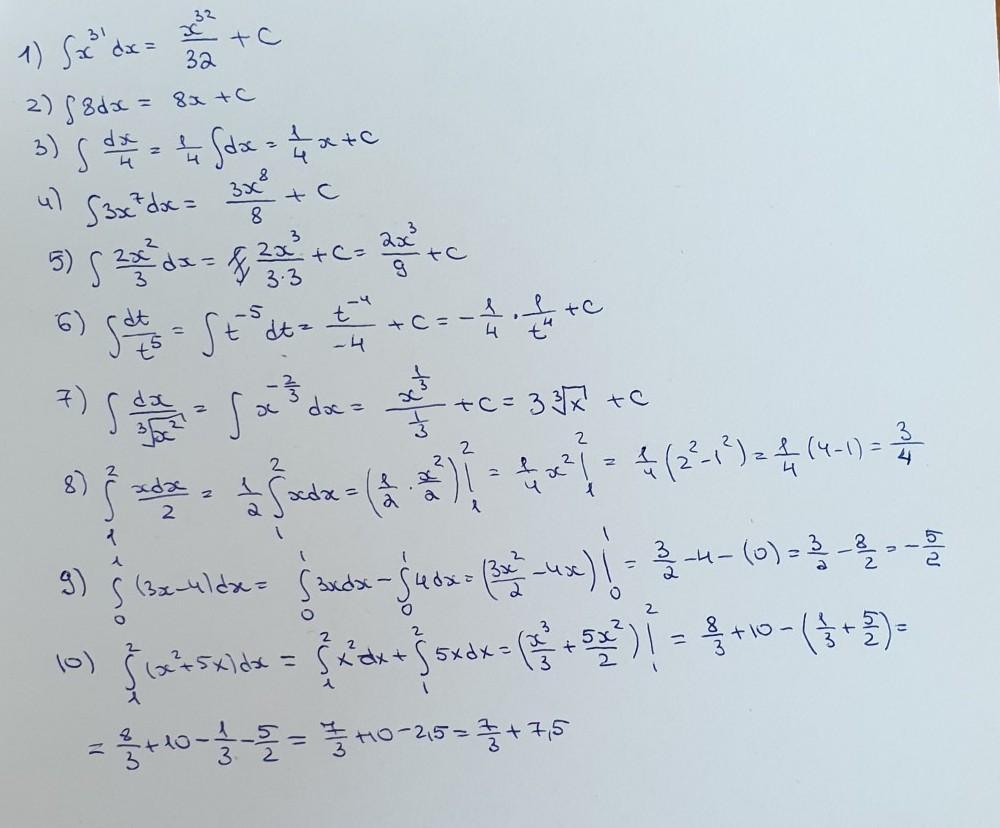 1) ∫x³¹ dx = x³²/32 + C
2) ∫8dx = 8x + C
3) ∫ dx/4 = 1/4 ∫dx = 1/4 x + C
4) ∫3x⁷dx = 3x⁸/8 + C
5) ∫ 2x²/3 dx = 2x³/(3·3) + C = 2x³/9 + C
6) ∫ dt/t⁵ = ∫ t⁻⁵ dt = t⁻⁴/-4 + C = -1/4 · 1/t⁴ + C
7) ∫ dx/∛x² = ∫ x^(-2/3) dx = x^(1/3)/(1/3) + C = 3∛x + C
8) ∫₁² xdx/2 = 1/2 ∫₁² xdx = (1/2 · x²/2)|₁² = 1/4 x²|₁² = 1/4 (2²-1²) = 1/4 (4-1) = 3/4
9) ∫₀¹ (3x-4)dx = ∫₀¹ 3xdx - ∫₀¹ 4dx = (3x²/2 - 4x)|₀¹ = 3/2 - 4 - (0) = 3/2 - 8/2 = -5/2
10) ∫₁² (x²+5x)dx = ∫₁² x²dx + ∫₁² 5xdx = (x³/3 + 5x²/2)|₁² = 8/3 + 10 - (1/3 + 5/2) =
= 8/3 + 10 - 1/3 - 5/2 = 7/3 + 10 - 2,5 = 7/3 + 7,5